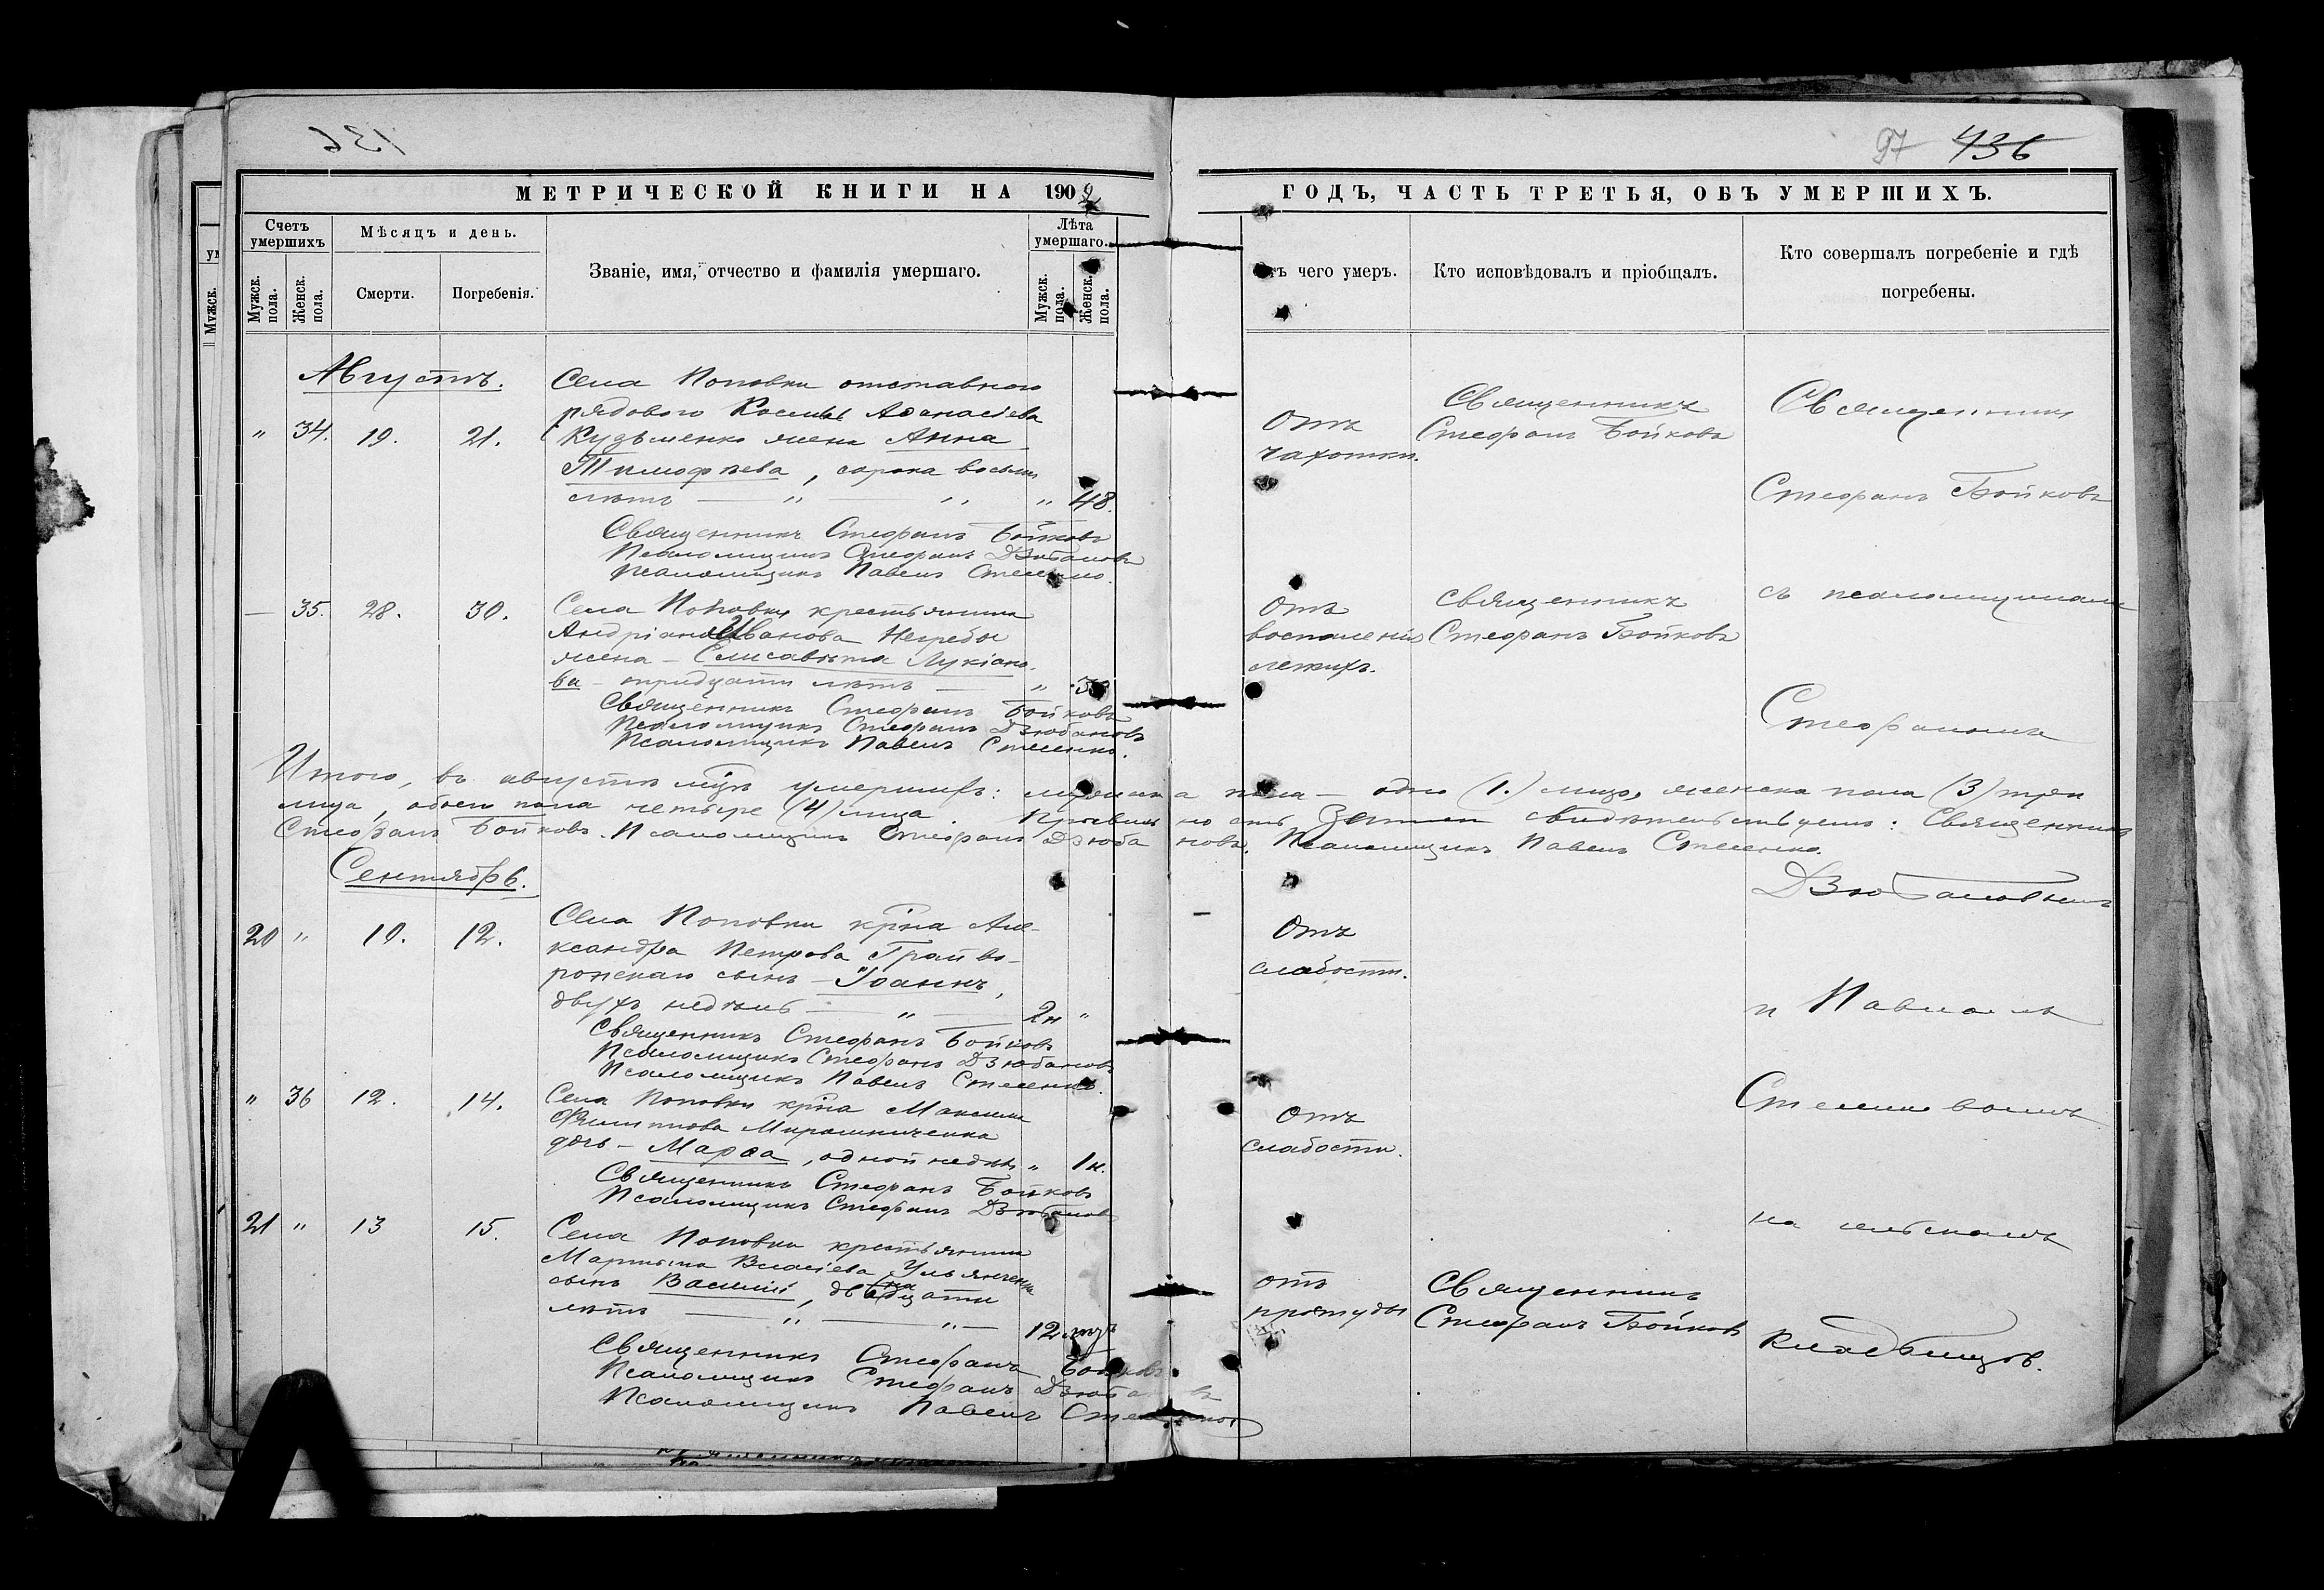 136
97 436
МЕТРИЧЕСКОЙ КНИГИ НА 1902
ГОДЪ, ЧАСТЬ ТРЕТЬЯ, ОБЪ УМЕРШИХЪ.
Счетъ умершихъ
Мужск. пола.
Женск. пола.
Мѣсяцъ и день.
Смерти.
Погребенія.
Званіе, имя, отчество и фамилія умершаго.
Лѣта умершаго.
Мужск. пола.
Женск. пола.
чего умеръ.
Кто исповѣдовалъ и пріобщалъ.
Кто совершалъ погребеніе и гдѣ
погребены.
Августъ.
" 34. 19. 21.
Села Поповки отставного
рядового Космы Аѳанасіева
Кузьменко жена Анна
Тимофѣева, сорока восьми
лѣтъ — " — " " 48.
Священникъ Стефанъ Бойковъ
Псаломщикъ Стефанъ Дзюбановъ
Псаломщикъ Павелъ Стеценко.
Отъ
чахотки.
Священникъ
Стефанъ Бойковъ
— 35. 28. 30.
Села Поповки крестьянина
Андріана Иванова Негребы
жена – Елисавета Лукіано-
ва – тридцати лѣтъ — " 30
Священникъ Стефанъ Бойковъ
Псаломщикъ Стефанъ Дзюбановъ
Псаломщикъ Павелъ Стеценко.
Отъ
воспаленія
легкихъ.
Священникъ
Стефанъ Бойковъ
Итого, въ августѣ мцѣ умершихъ: мужска пола – одно (1.) лицо, женска пола (3) три
лица, обоего пола четыре (4) лица. Правильность записи свидѣтельствуемъ: Священникъ
Стефанъ Бойковъ. Псаломщикъ Стефанъ Дзюбановъ. Псаломщикъ Павелъ Стеценко.
Сентябрь.
20 " 10. 12.
Села Поповки крна Але-
ксандра Петрова Грайво-
ронскаго сынъ – Іоаннъ,
двухъ недѣль — " — 2н "
Священникъ Стефанъ Бойковъ
Псаломщикъ Стефанъ Дзюбановъ
Псаломщикъ Павелъ Стеценко.
Отъ
слабости.
" 36 12. 14.
Села Поповки крна Максима
Филиппова Мирошниченка
дочь – Марѳа, одной недѣли " 1н.
Священникъ Стефанъ Бойковъ
Псаломщикъ Стефанъ Дзюбановъ
Отъ
слабости.
21 " 13 15.
Села Поповки крестьянина
Мартына Власіева Ульянченка
сынъ Василій, двѣнадцати
лѣтъ — " — " — 12
Священникъ Стефанъ Бойковъ
Псаломщикъ Стефанъ
Псаломщикъ Павелъ
отъ
простуды
Священникъ
Стефанъ Бойковъ
Священникъ
Стефанъ Бойковъ
съ псаломщиками
Стефаномъ
Дзюбановымъ
и Павломъ
Стеценковымъ
на сельскомъ
кладбищѣ.